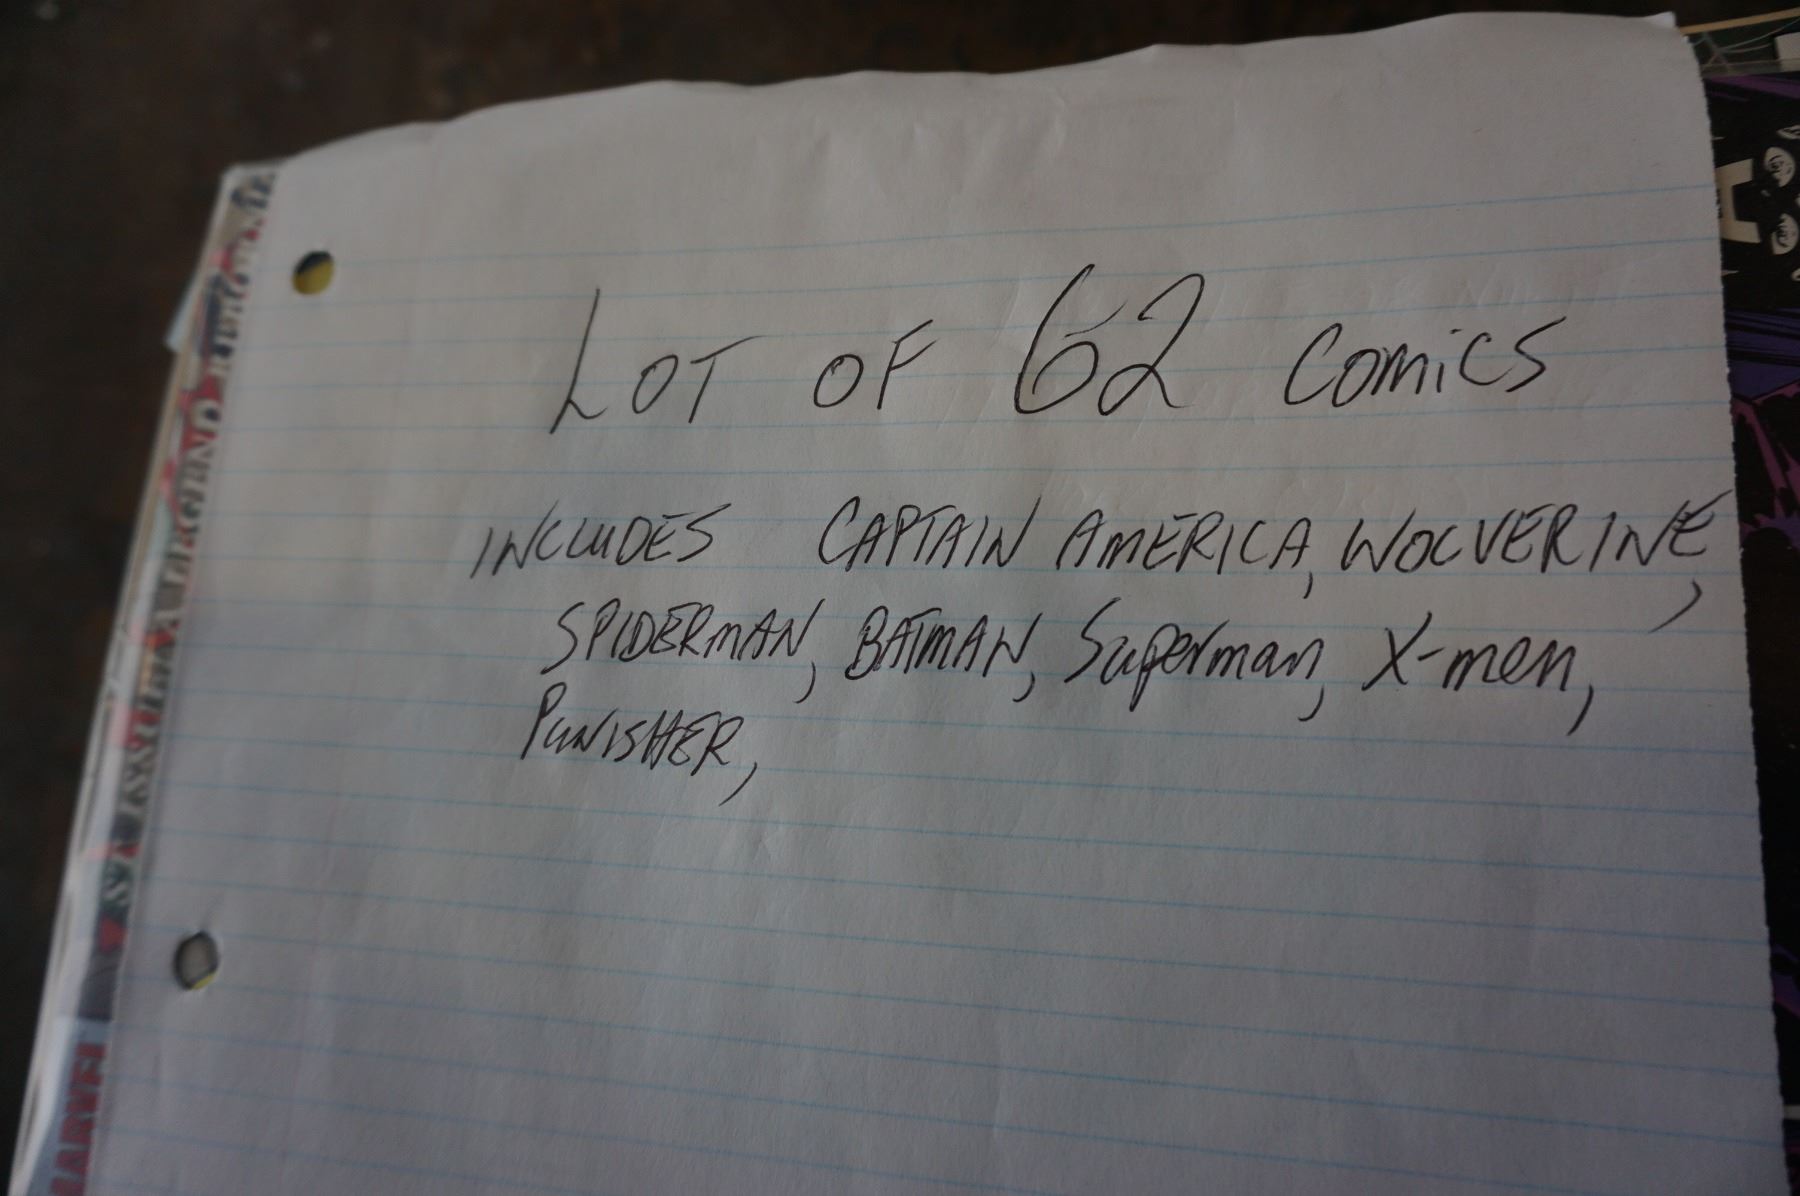 LOT OF 62 COMICS
INCLUDES CAPTAIN AMERICA, WOLVERINE,
SPIDERMAN, BATMAN, Superman, X-men,
PUNISHER,
MARVEL